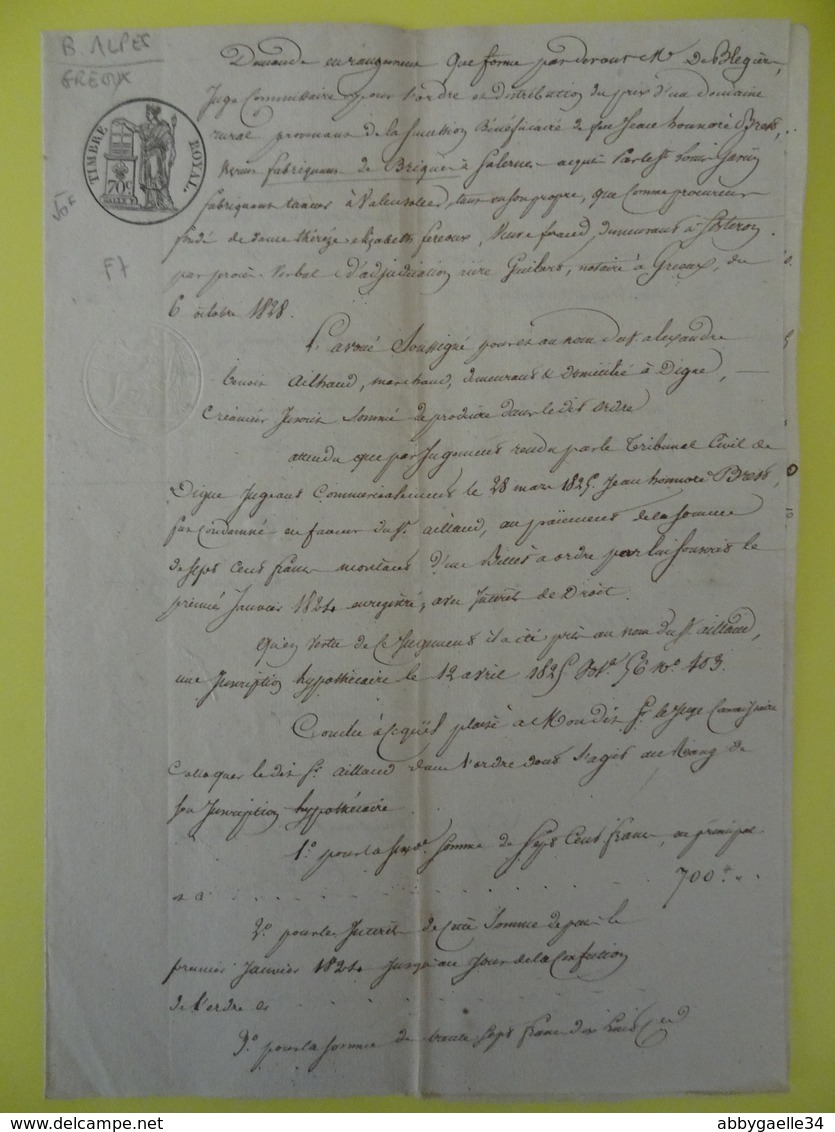 B. ALPES
GREOUX
TIMBRE ROYAL
70c
F7
Demande en rangement que forme par devant Mr De Blegier,
Juge Commissaire pour l'ordre et distribution du prix d'un domaine
rural provenant de la succession Bénéficiaire de feu Jean honnoré Bress,
fabriquant de Briques à Salernes acquis par le Sr Louis
fabriquant tanneur à Valensolles, tant en son propre, que comme procureur
fondé de dame thérèze elizabeth fereoux, Veuve feraud, demeurant à Sisteron
par procès-Verbal d'adjudication rière Guibert, notaire à Greoux, du
6 octobre 1828.
L'avoué Soussigné pour et au nom du Sr alexandre
benoit Ailhaud, marchand, demeurant & domicilié à Digne,
Créancier Inscrit Sommé de produire dans le dit ordre
attendu que par Jugement rendu par le Tribunal Civil de
Digne Jugeant Commercialement le 28 mars 1825 Jean honnoré Bress,
fut Condamné en faveur du Sr aillaud, au paiement de la Somme
de Sept Cent francs montant d'un Billet à ordre par lui Souscrit le
premier Janvier 1824 enregistré, avec Intérêts de Droit.
Qu'en vertu de ce Jugement il a été pris au nom du Sr aillaud,
une Inscription hypothécaire le 12 avril 1825 Vol. 56 no 403.
Conclu à ce qu'il plaise à Mondit Sr le Juge Commissaire
Colloquer le dit Sr aillaud dans l'ordre dont s'agit au Rang de
son Inscription hypothécaire
1o pour la Susde Somme de Sept Cent francs, en principal
700f
2o pour les Intérêts de cette Somme depuis le
premier Janvier 1824 Jusqu'au Jour de la Confection
de l'ordre
3o pour la Somme de trente Sept francs
delcampe.net
abbygaelle34